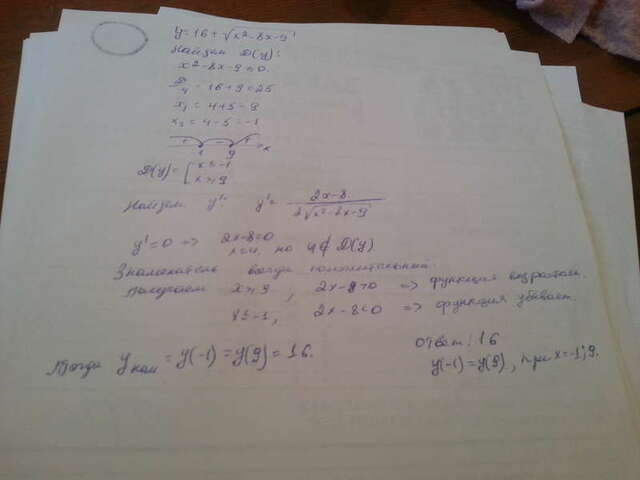 y = 16 + √x²-8x-9
Найдём D(y):
x²-8x-9≥0.
D/4 = 16+9=25
x₁ = 4+5=9
x₂ = 4-5=-1
+ - + x
1 9
D(y) = [ x≤-1
x≥9
Найдём y': y' = 2x-8 / 2√x²-8x-9
y'=0 => 2x-8=0
x=4, но 4∉D(y)
Знаменатель всегда положительный.
Получаем x≥9, 2x-8>0 => функция возрастает.
x≤-1, 2x-8<0 => функция убывает.
Тогда y наим = y(-1) = y(9) = 16.
Ответ: 16
y(-1)=y(9), при x=-1; 9.